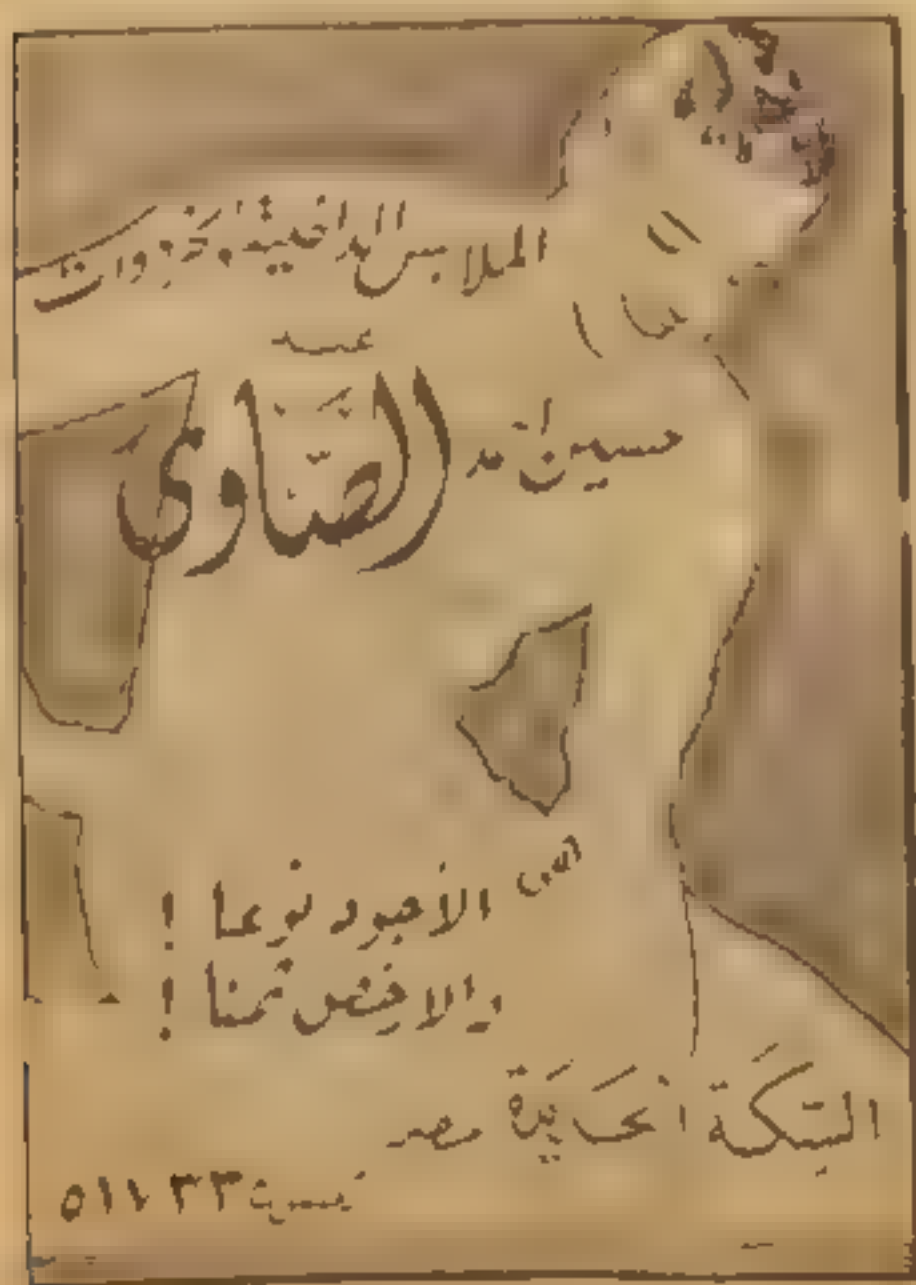 الملابس الداخلية وخردوات
عند
حسين أحمد الصاوى
الأجود نوعا !
والارخص ثمنا !
السكة الجديدة مصر
تليفون ٥١١٣٣